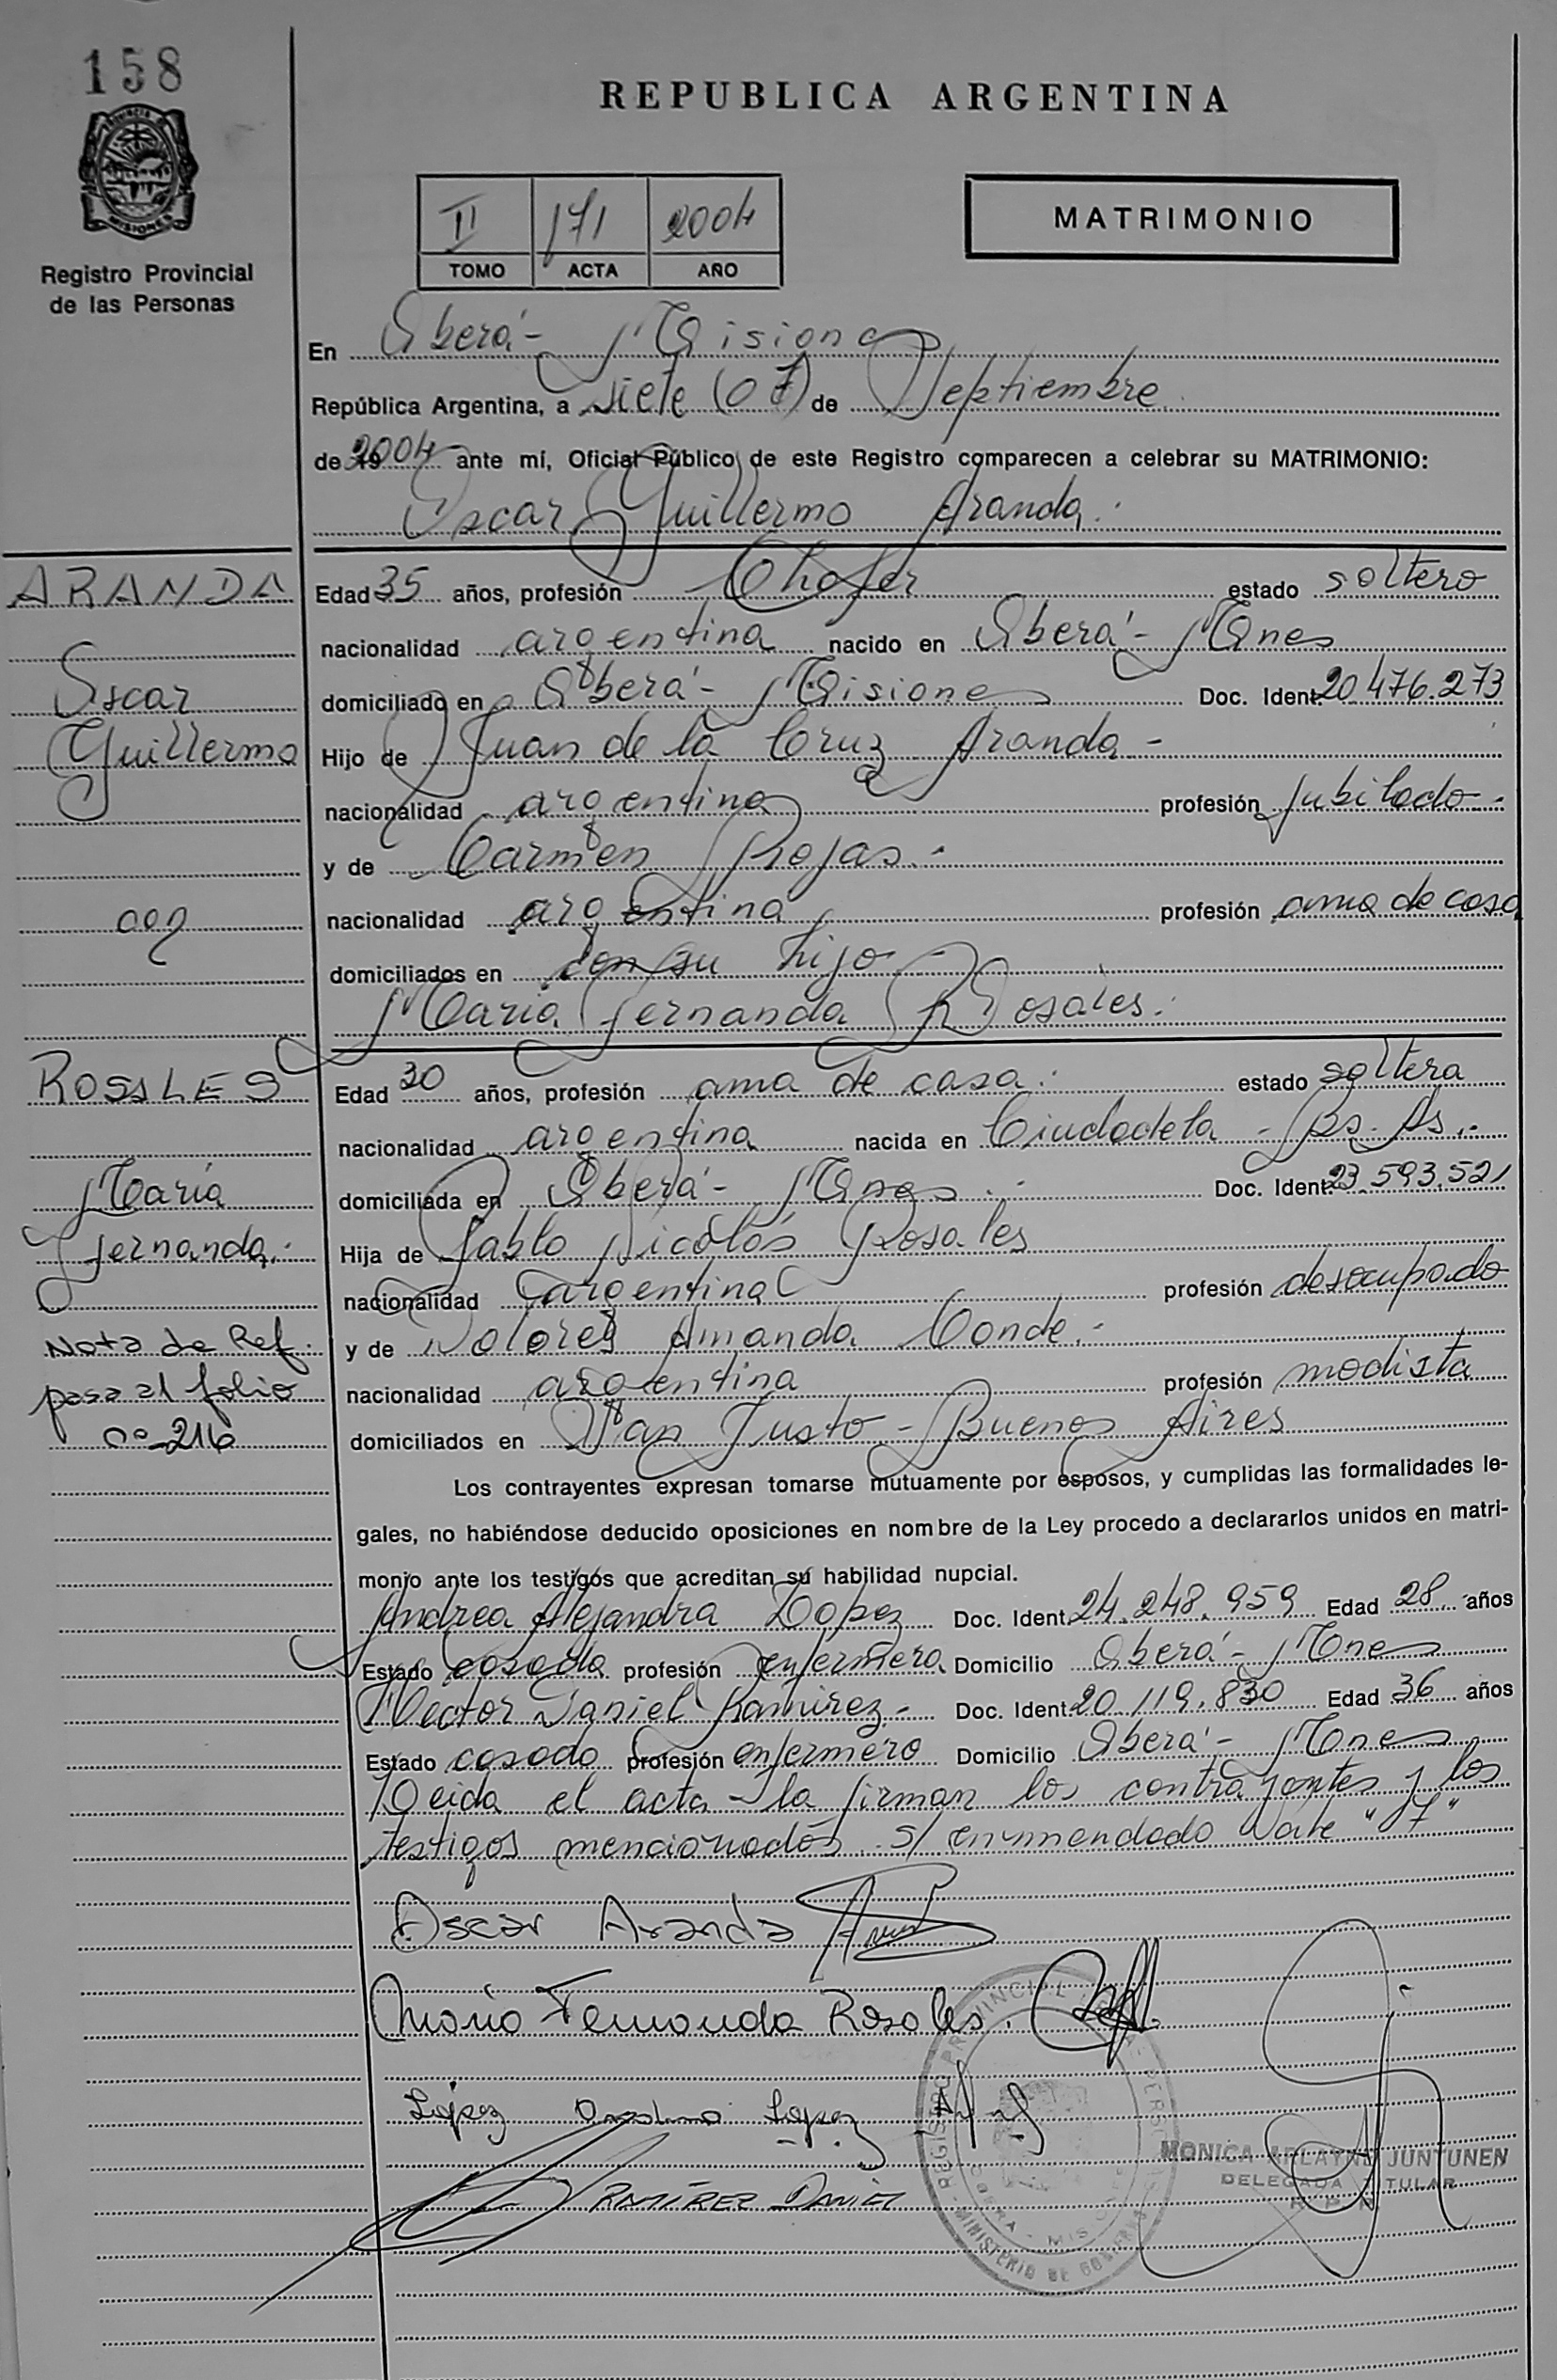 158
REPUBLICA ARGENTINA
II 171 2004
TOMO ACTA AÑO
MATRIMONIO
Registro Provincial
de las Personas
En Oberá - Misiones
República Argentina, a siete (07) de Septiembre
de 2004 ante mí, Oficial Público de este Registro comparecen a celebrar su MATRIMONIO:
Oscar Guillermo Aranda.
ARANDA
Oscar
Guillermo
ROSALES
María
Fernanda.
Nota de Ref.
pasa al folio
nº 216
Edad 35 años, profesión Chofer estado soltero
nacionalidad argentina nacido en Oberá - Mnes
domiciliado en Oberá - Misiones Doc. Ident. 20.476.273
Hijo de Juan de la Cruz Aranda -
nacionalidad argentina profesión jubilado -
y de Carmen Rojas. -
nacionalidad argentina profesión ama de casa
domiciliados en con su hijo -
María Fernanda Rosales.
Edad 30 años, profesión ama de casa. estado soltera
nacionalidad argentina nacida en Ciudadela - Bs. As. -
domiciliada en Oberá - Mnes Doc. Ident. 23.593.521
Hija de Pablo Nicolás Rosales
nacionalidad argentina profesión desocupado
y de Dolores Amanda Conde. -
nacionalidad argentina profesión modista
domiciliados en San Justo - Buenos Aires
Los contrayentes expresan tomarse mutuamente por esposos, y cumplidas las formalidades le-
gales, no habiéndose deducido oposiciones en nombre de la Ley procedo a declararlos unidos en matri-
monio ante los testigos que acreditan su habilidad nupcial.
Andrea Alejandra Lopez Doc. Ident. 24.248.959 Edad 28 años
Estado casada profesión enfermera Domicilio Oberá - Mnes
Hector Daniel Ramirez - Doc. Ident. 20.119.830 Edad 36 años
Estado casado profesión enfermero Domicilio Oberá - Mnes
Leida el acta - la firman los contrayentes y los
testigos mencionados. s/ enmendado Vale "07"
Oscar Aranda
María Fernanda Rosales.
López López
RAMÍREZ DANIEL
REGISTRO PROVINCIAL
MINISTERIO DE GOBIERNO
MONICA ARLAYNE JUNTUNEN
DELEGADA TITULAR